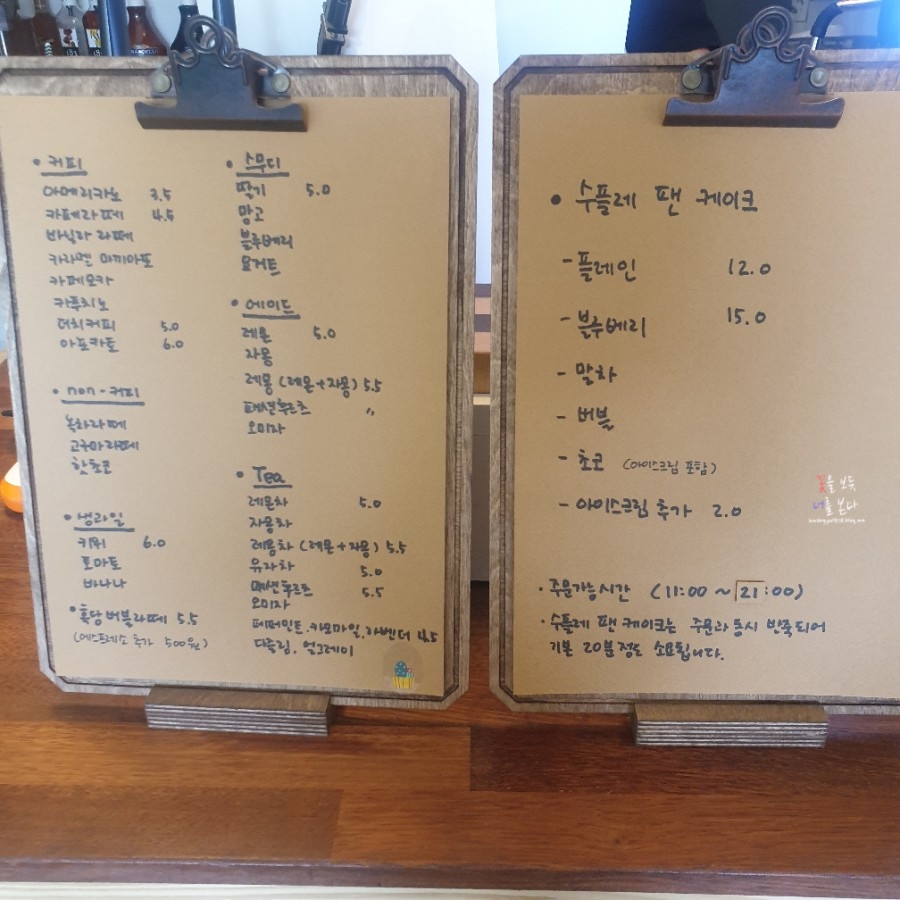 • 커피
아메리카노 3.5
카페라떼 4.5
바닐라 라떼
카라멜 마끼아또
카페모카
카푸치노
더치커피 5.0
아포카토 6.0
• non-커피
녹차라떼
고구마라떼
핫초코
• 생과일
키위 6.0
토마토
바나나
• 흑당버블라떼 5.5
(에스프레소 추가 500원)
• 스무디
딸기 5.0
망고
블루베리
요거트
• 에이드
레몬 5.0
자몽
레몽 (레몬+자몽) 5.5
패션후르츠 〃
오미자
• Tea
레몬차 5.0
자몽차
레몽차 (레몬+자몽) 5.5
유자차 5.0
패션후르츠 5.5
오미자
페퍼민트.카모마일.라벤더 4.5
다즐링. 얼그레이
• 수플레 팬 케이크
- 플레인 12.0
- 블루베리 15.0
- 말차
- 버블
- 초코 (아이스크림 포함)
- 아이스크림 추가 2.0
꽃을 보듯
너를 본다
• 주문가능시간 (11:00 ~ 21:00)
• 수플레 팬 케이크는 주문과 동시 반죽되어
기본 20분정도 소요됩니다.